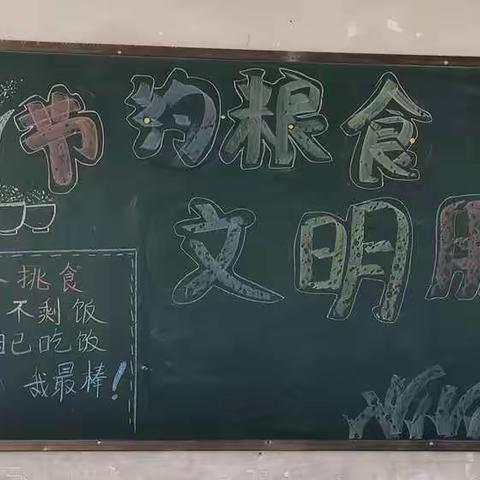 节约粮食
文明
挑食
不剩饭
自己吃饭
我最棒！